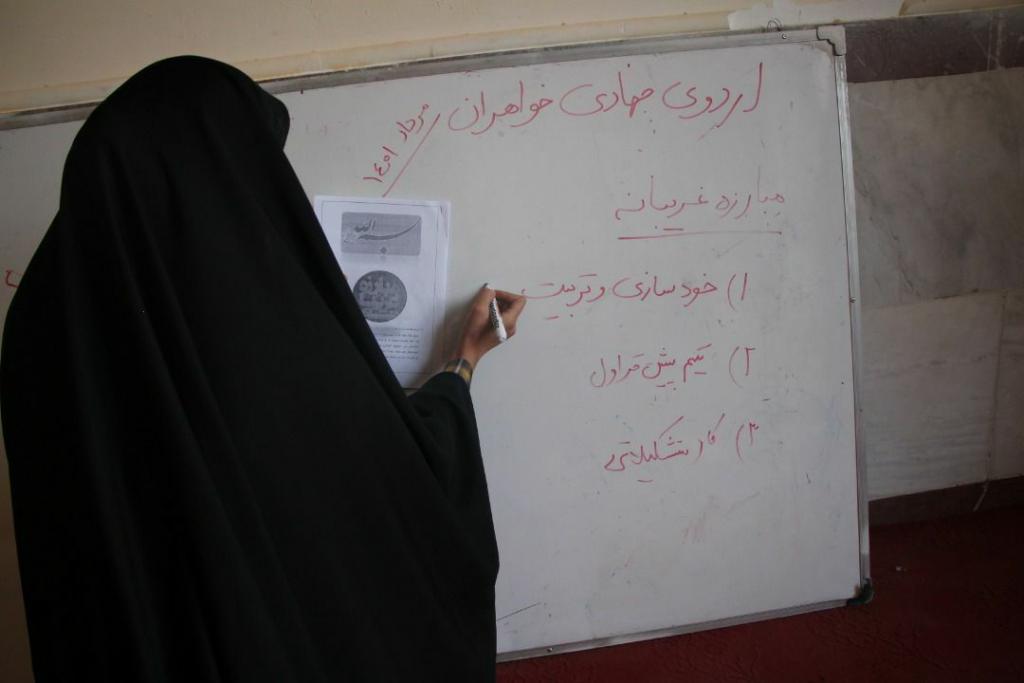 اردوی جهادی خواهران
مرداد ۱۴۰۱
مبارزه غریبانه
۱) خودسازی و تربیت
۲) تیم پیش قراول
۳) کار تشکیلاتی
بسم الله